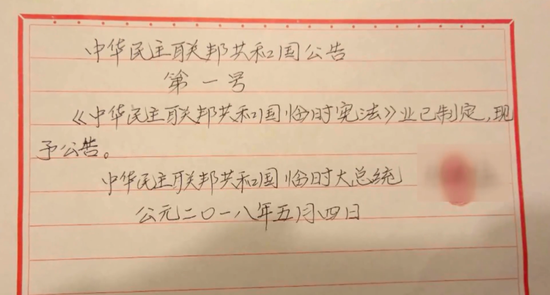 中华民主联邦共和国公告
第一号
《中华民主联邦共和国临时宪法》业已制定,现
予公告。
中华民主联邦共和国临时大总统
公元二〇一八年五月四日